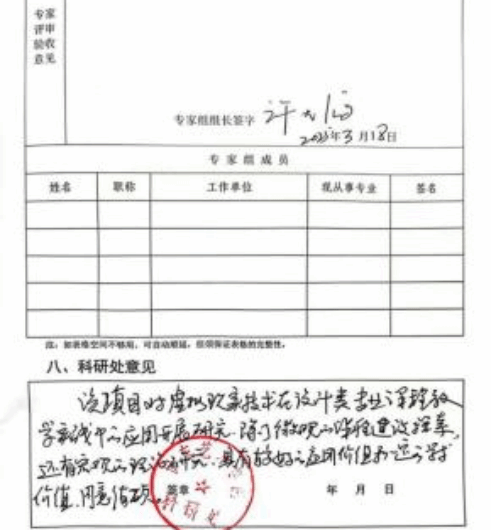 专家
评审
验收
意见
专家组组长签字
2023年3月18日
专家组成员
姓名 职称 工作单位 现从事专业 签名
注：如表格空间不够用，可自动顺延，但须保证表格的完整性。
八、科研处意见
该项目对虚拟现实技术在设计类专业课程教
学实践中的应用开展研究，除了微观的课程建设探索，
还有宏观的理论研究，具有较好的应用价值和
价值，同意结项。
签章 年 月 日
科研处